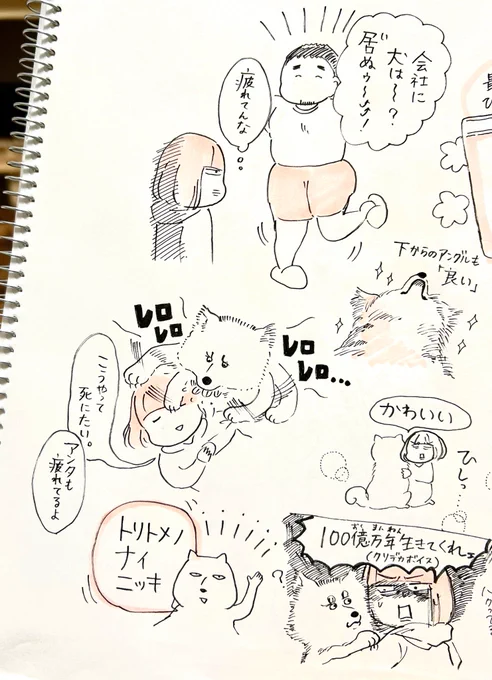 会社に
犬は〜？
居ぬゥ〜〜!
疲れてんな
下からのアングルも
「良い」
レロ
レロ
レロ
レロ...
こうやって
死にたい。
アンタも
疲れてるよ
かわいい
ひしっ
100億万年生きてくれェ
おくまんねん
(クリデカボイス)
トリトメノ
ナイ
ニッキ
?